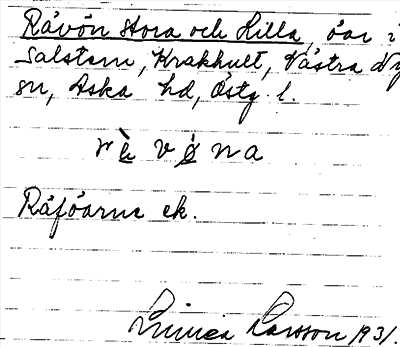 Råvön Stora och Lilla, öar i
Salstern, Krakhult, Västra Ny
sn, Aska hd, Östg. l.
rävǿna
Räföarne ek.
Linnea Larsson 1931.